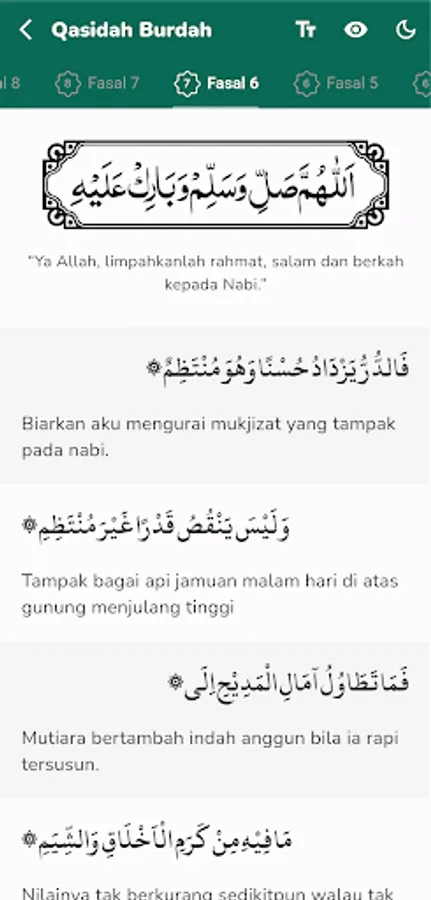 Qasidah Burdah
Tт
l 8
8 Fasal 7
7 Fasal 6
6 Fasal 5
اَللّٰهُمَّ صَلِّ وَسَلِّمْ وَبَارِكْ عَلَيْهِ
"Ya Allah, limpahkanlah rahmat, salam dan berkah
kepada Nabi."
فَالدُّرُّ يَزْدَادُ حُسْنًا وَهُوَ مُنْتَظِمٌ ۞
Biarkan aku mengurai mukjizat yang tampak
pada nabi.
وَلَيْسَ يَنْقُصُ قَدْرًا غَيْرَ مُنْتَظِمِ ۞
Tampak bagai api jamuan malam hari di atas
gunung menjulang tinggi
فَمَا تَطَاوُلُ آمَالِ الْمَدِيْحِ اِلَى ۞
Mutiara bertambah indah anggun bila ia rapi
tersusun.
مَا فِيْهِ مِنْ كَرَمِ الْاَخْلَاقِ وَالشِّيَمِ ۞
Nilainya tak berkurang sedikitpun walau tak